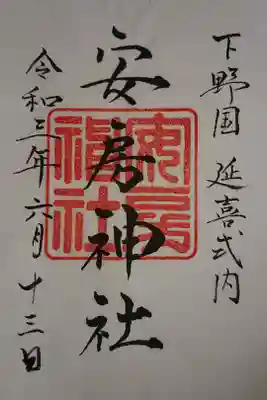 下野国 延喜式内
安房神社
安房神社
令和三年 六月 十三日